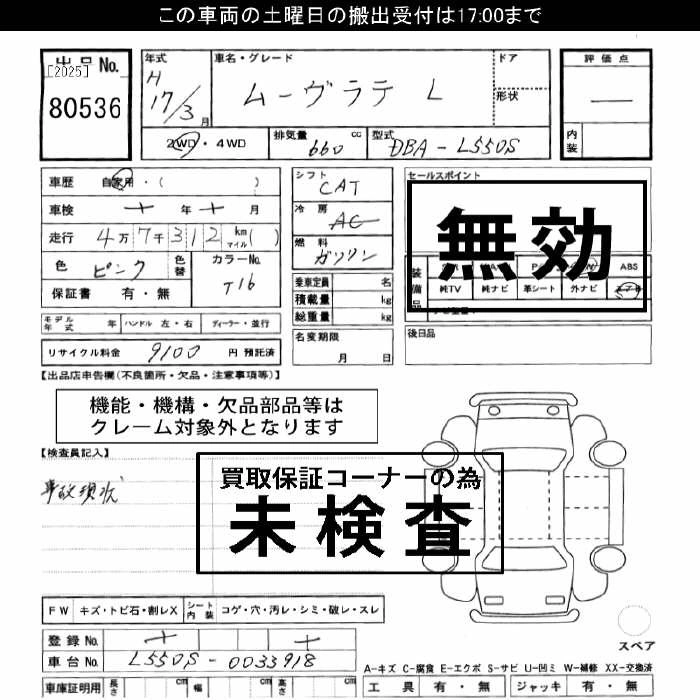 この車両の土曜日の搬出受付は17:00まで
出品No.
[2025]
80536
年式
H
17/3月
車名・グレード
ムーヴラテ L
ドア
形状
評価点
―
内装
2WD・4WD
排気量 660 cc
型式 DBA-L550S
車歴 自家用・( )
車検 年 月
走行 4万7千312 km マイル( )
色 ピンク
色替
カラーNo. T16
保証書 有・無
シフト CAT
冷房 AC
燃料 ガソリン
乗車定員 名
積載量 kg
総重量 kg
セールスポイント
無効
装備品
ABS
純TV 純ナビ 革シート 外ナビ
後日品
モデル年式 年 ハンドル 左・右 ディーラー・並行
リサイクル料金 9100 円 預託済
名変期限
月 日
【出品店申告欄(不良箇所・欠品・注意事項等)】
機能・機構・欠品部品等は
クレーム対象外となります
【検査員記入】
事故現状
買取保証コーナーの為
未検査
FW キズ・トビ石・割レX シート内装 コゲ・穴・汚レ・シミ・破レ・スレ
登録No.
車台No. L550S-0033918
スペア
A-キズ C-腐食 E-エクボ S-サビ U-凹ミ W-補修 XX-交換済
車庫証明用 長さ cm 幅 cm 高さ cm
工具 有・無 ジャッキ 有・無